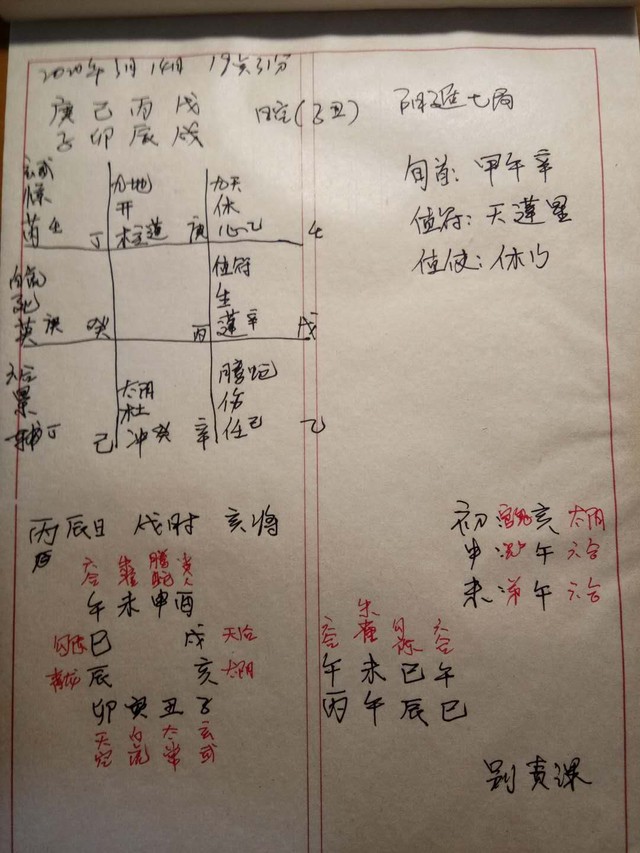 2020年3月14日 19点31分
庚 己 丙 戊
子 卯 辰 戌
日空(子丑)
阳遁七局
旬首: 甲午辛
值符: 天蓬星
值使: 休门
玄武 九地 九天
惊 开 休
芮 丁 柱 庚 心
值符
死 生
英 庚 癸 丙 蓬 辛 戊
太阴 腾蛇
景 杜 伤
辅 丁 己 冲 癸 辛 任 己 乙
丙辰日 戌时 亥将
六合 朱雀 腾蛇 贵人
午 未 申 酉
勾陈 巳 戌 天后
青龙 辰 亥 太阴
卯 寅 丑 子
天空 白虎 太常 玄武
初 官鬼 亥 太阴
中 午 六合
末 午 六合
六合 朱雀 勾陈 六合
午 未 巳 午
丙 午 辰 巳
别责课